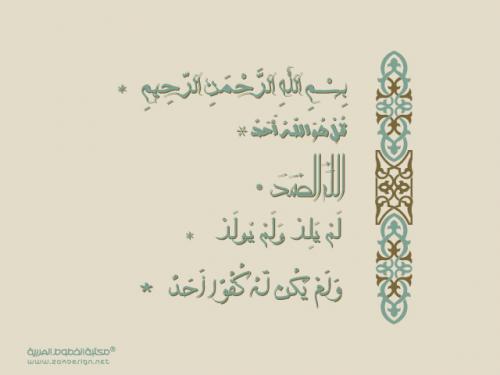 بِسْمِ اللَّهِ الرَّحْمَنِ الرَّحِيمِ *
قُلْ هُوَ اللَّهُ أَحَدٌ *
اللَّهُ الصَّمَدُ *
لَمْ يَلِدْ وَلَمْ يُولَدْ *
وَلَمْ يَكُنْ لَهُ كُفُوًا أَحَدٌ *
مكتبة الخطوط العربية®
www.zandesign.net